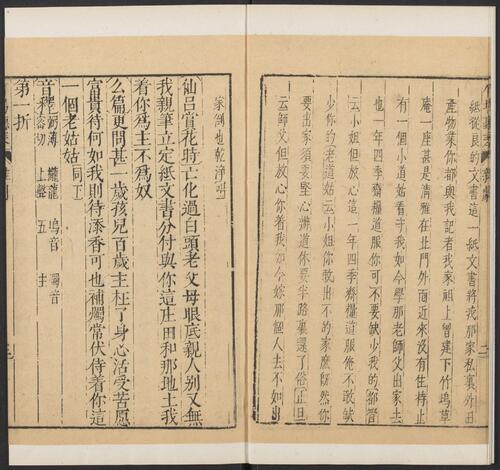 紙從良的文書這一紙文書將我那家私裏外田
產物業你都與我記者我家祖上曾建下竹塢草
庵一座甚是清雅在北門外面近來沒有住持止
有一個小道姑看守我如今學那老師父出家去
也一年四季齋糧道服你可不要缺少我的鄒晉
云小姐但放心這一年四季齋糧道服俺不敢缺
少你的老道姑云小姐你敢出不的家麽旣然你
要出家須要堅心辦道你要半路裏還了俗正旦
云師父但放心你着我如今嫁那個人去不如出
家倒也乾淨唱
仙呂賞花時亡化過白頭老父母眼底親人别又無
我親筆立定紙文書分付與你這庄田和那地土我
着你爲主不爲奴
么篇更問甚一歲孩兒百歲主枉了身心活受苦愿
富貴待何如我則待添香可也補燭常伏侍着你這
一個老姑姑同下
音釋 薄 上聲 塢音五 燭音主
第一折